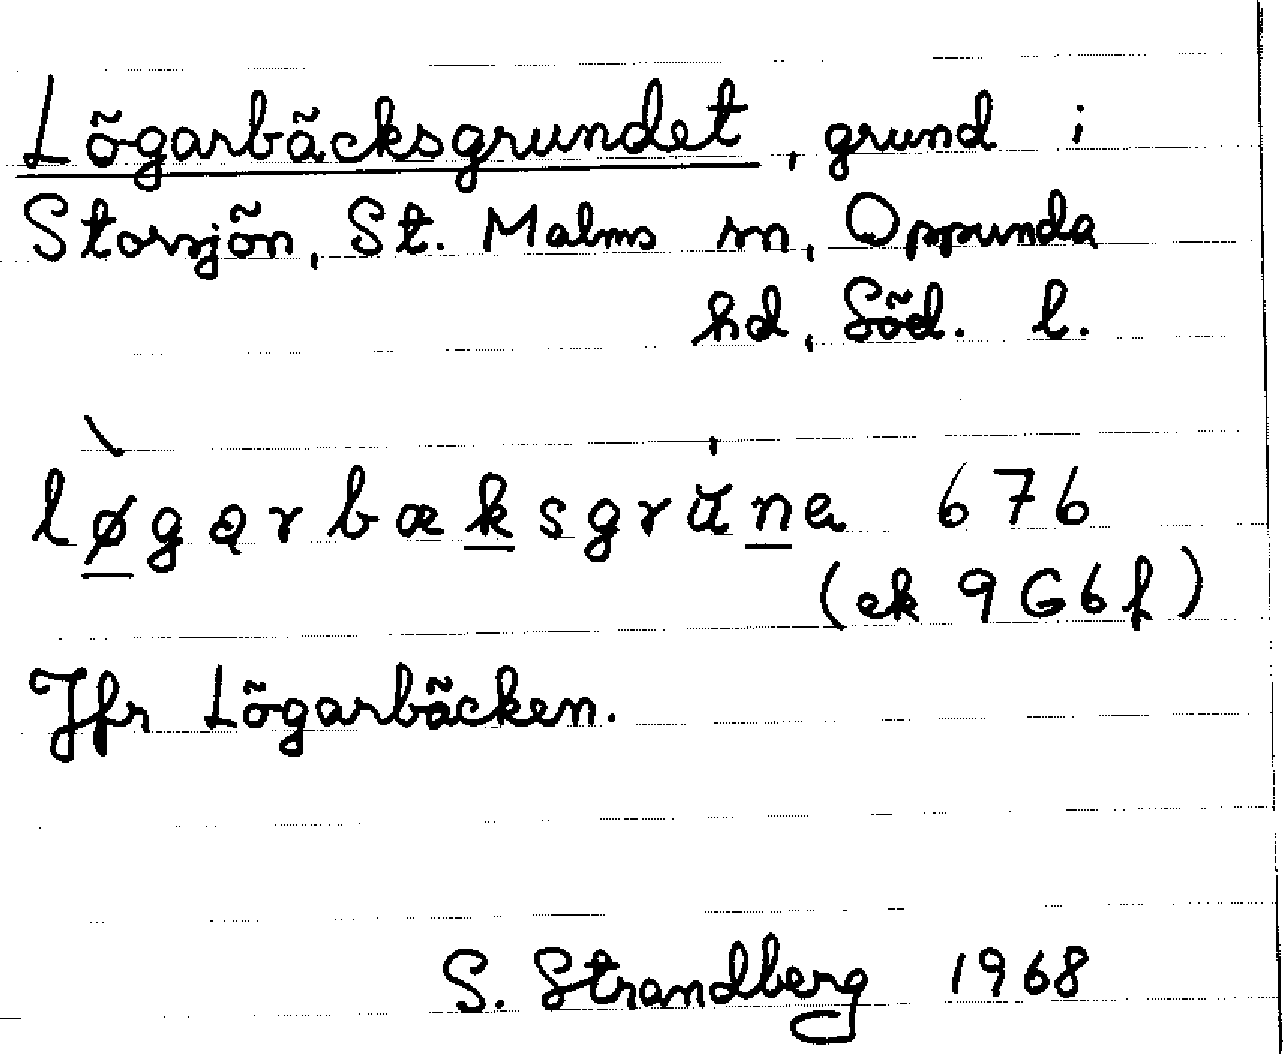 Lögarbäcksgrundet, grund i
Storsjön, St. Malms sn, Oppunda
hd, Söd. l.
lø̲garbæk̲sgrŭn̲a 676
(ek 9G6f)
Jfr Lögarbäcken.
S. Strandberg 1968